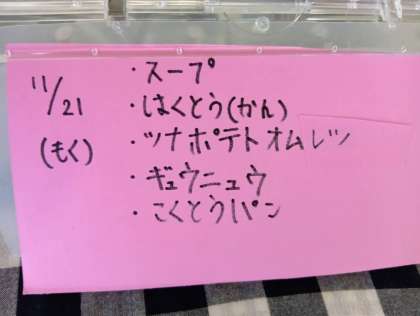 11/21
(もく)
・スープ
・はくとう(かん)
・ツナポテトオムレツ
・ギュウニュウ
・こくとうパン